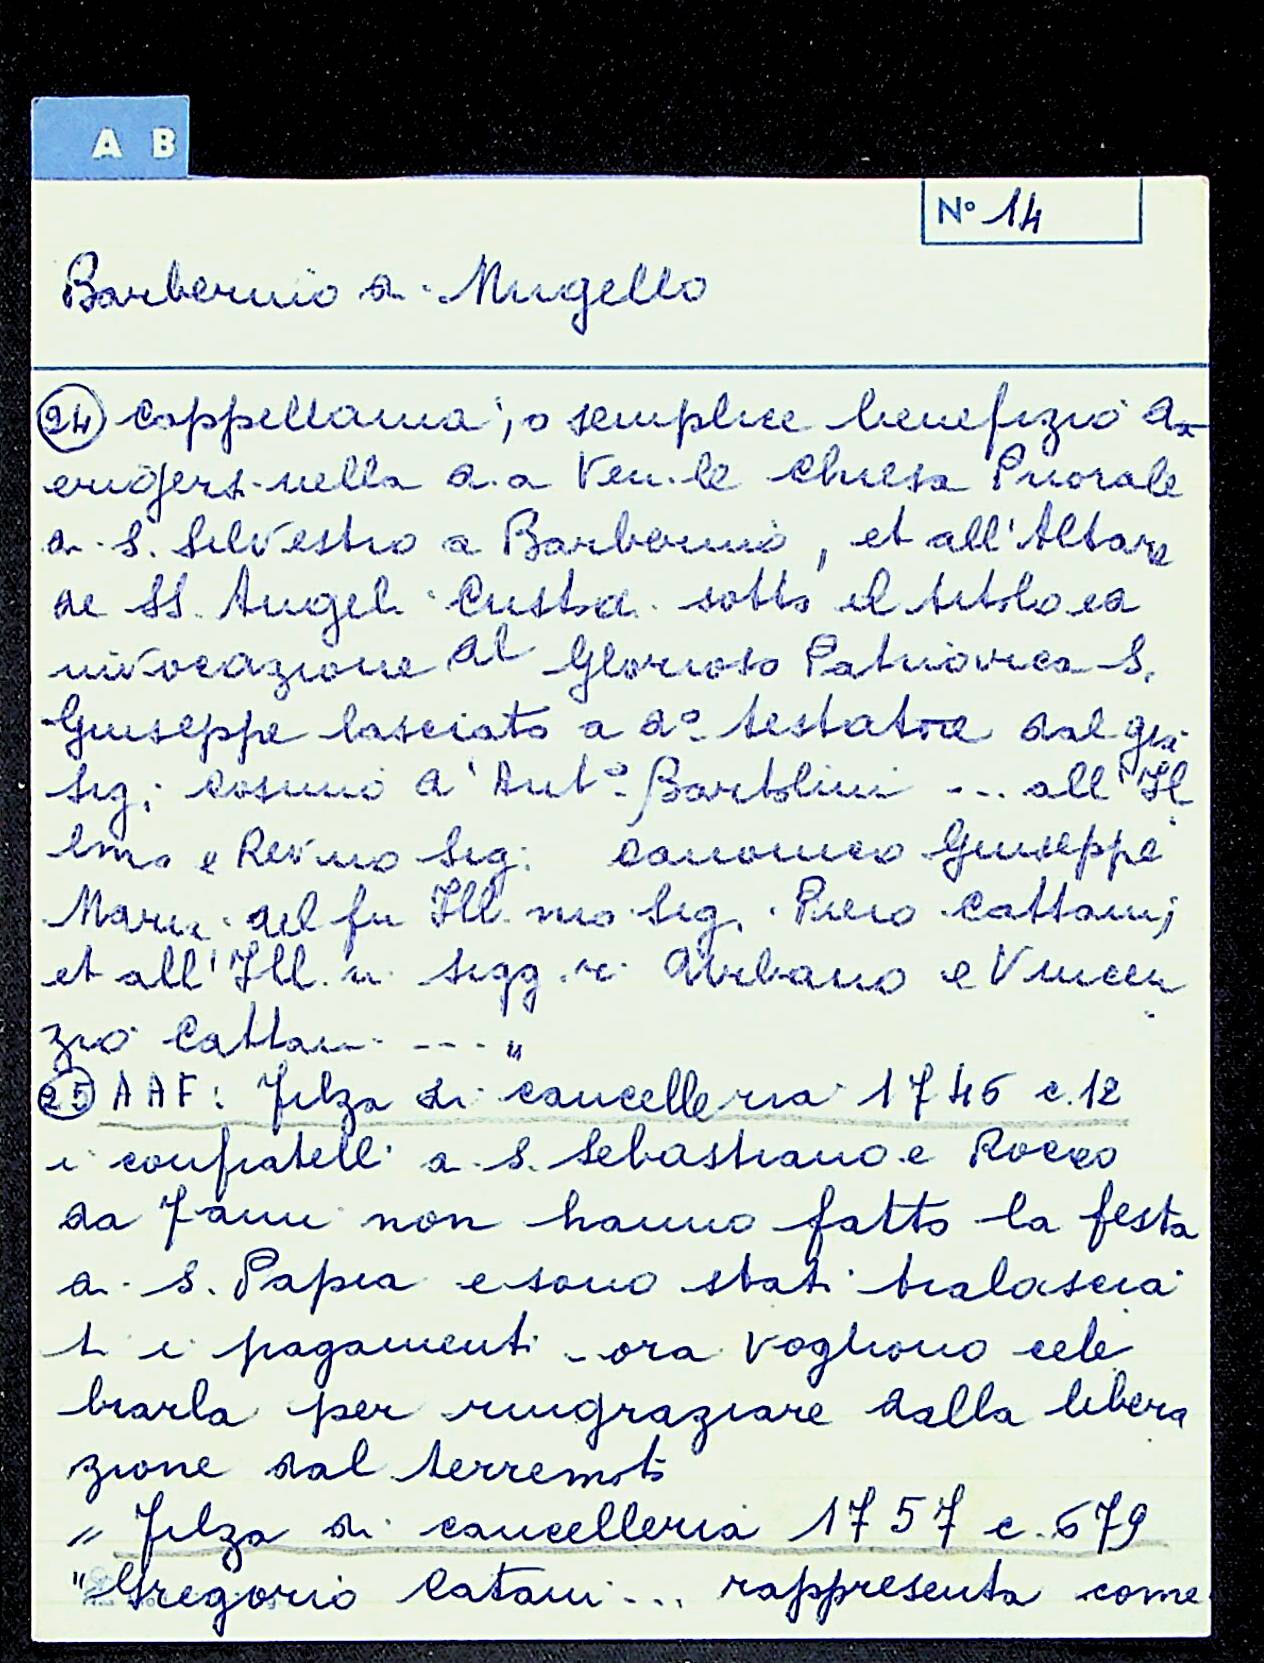 A B
N° 14
Barberino di Mugello
(24) Cappellania, o semplice benefizio da
erigersi nella d.a Ven.le Chiesa Priorale
di S. Silvestro a Barberino, et all'Altare
de SS. Angeli Custodi sotto il titolo ed
invocazione del Glorioso Patriarca S.
Giuseppe lasciato a d° testatore dal già
Sig: Cosimo d'Ant° Bartolini ... all'Il
lmo e Rev mo Sig: canonico Giuseppe
Maria del fu Ill. mo Sig. Piero Cattani,
et all'Ill. Sigg.ri Urbano e Vincen
zio Cattani ... "
(25) AAF: Filza di cancelleria 1746 c.12
i confratelli di S. Sebastiano e Rocco
da non hanno fatto la festa
di S. Papia e sono stati tralascia
ti i pagamenti - ora vogliono cele
brarla per ringraziare dalla libera
zione dal terremoto
" Filza di cancelleria 1757 c. 679
" Gregorio Catani ... rappresenta come